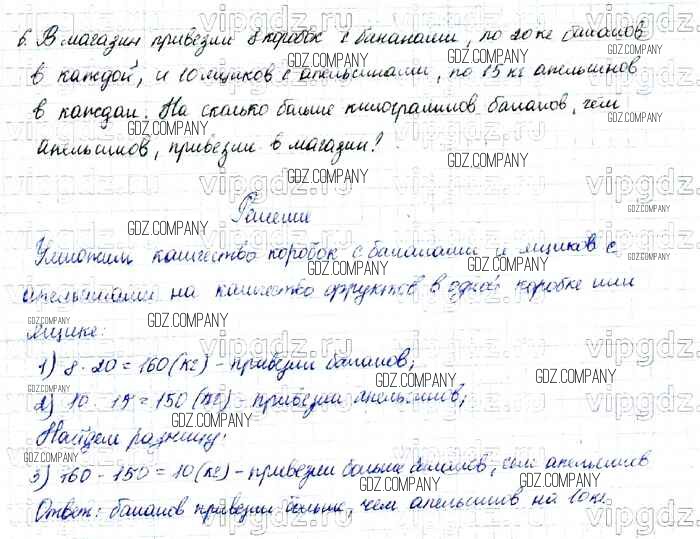 6. В магазин привезли 8 коробок с бананами, по 20 кг бананов
в каждой, и 10 ящиков с апельсинами, по 15 кг апельсинов
в каждом. На сколько больше килограммов бананов, чем
апельсинов, привезли в магазин?
Решение
Умножим количество коробок с бананами и ящиков с
апельсинами на количество фруктов в одной коробке или
ящике:
1) 8 · 20 = 160 (кг) - привезли бананов;
2) 10 · 15 = 150 (кг) - привезли апельсинов;
Найдем разницу:
3) 160 - 150 = 10 (кг) - привезли больше бананов, чем апельсинов
Ответ: бананов привезли больше, чем апельсинов на 10 кг.
vipgdz.ru
GDZ.COMPANY